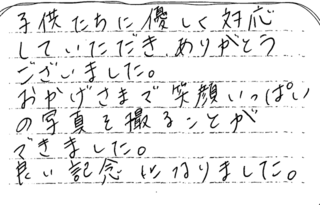 子供たちに優しく対応
していただき、ありがとう
ございました。
おかげさまで笑顔いっぱい
の写真を撮ることが
できました。
良い記念になりました。